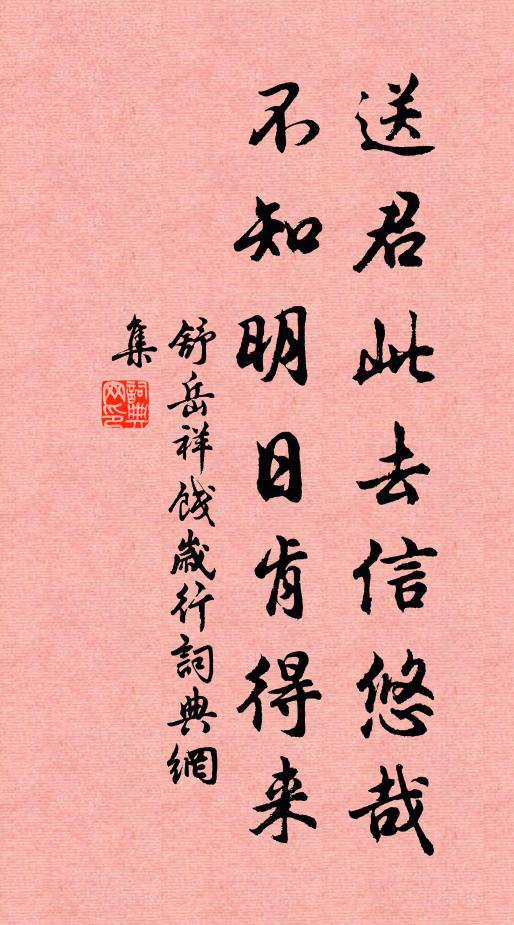 送君此去信悠哉
不知明日肯得来
舒岳祥餞歲行詞典網
集
詞典網印